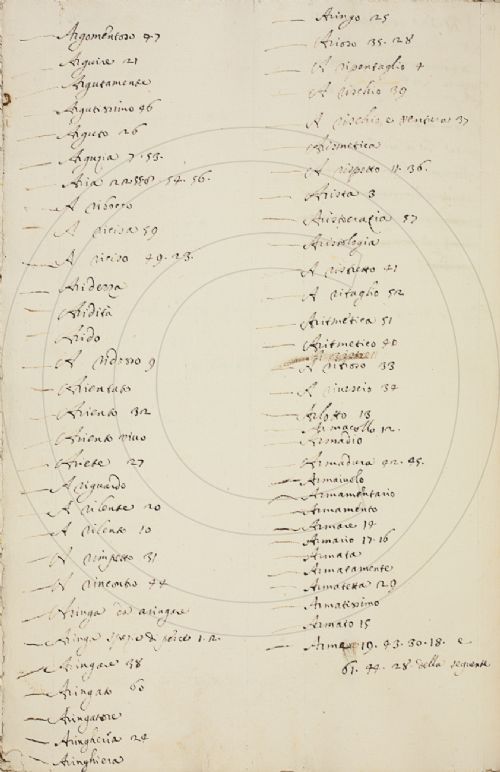 Argomentoso 47
Arguire 21
Argutamente
Argutissimo 46
Arguto 26
Arguzia 7. 53.
Aria 54. 56.
A ribocco
A ricisa 59
A riciso 49. 23.
Aridezza
Aridità
Arido
A ridosso 9
Arientato
Ariento 32
Ariento vivo
Ariete 27
A riguardo
A rilente 20
A rilento 10
A rimpetto 31
A rincontro 44
Aringa
Aringa spezie di pesce 1. 2.
Aringare 38
Aringato 60
Aringatore
Aringheria 24
Aringhiera
Aringo 25
Arioso 35. 28
A ripentaglio 4
A rischio 39
A rischio, e ventura 37
Arismetica
A rispetto 11. 36.
Arista 3
Aristocrazia 57
Aristologia
A ristretto 41
A ritaglio 52
Aritmetica 51
Aritmetico 40
A ritroso 33
A rivescio 34
Arlotto 13
Armacollo 12.
Armadio
Armadura 42. 45.
Armaiuolo
Armamentario
Armamento
Armare 14
Armario 17. 16
Armata
Armatamente
Armatetta 29
Armatissimo
Armato 15
Arme 19. 43. 30. 18. e
61. 44. 28 della seguente